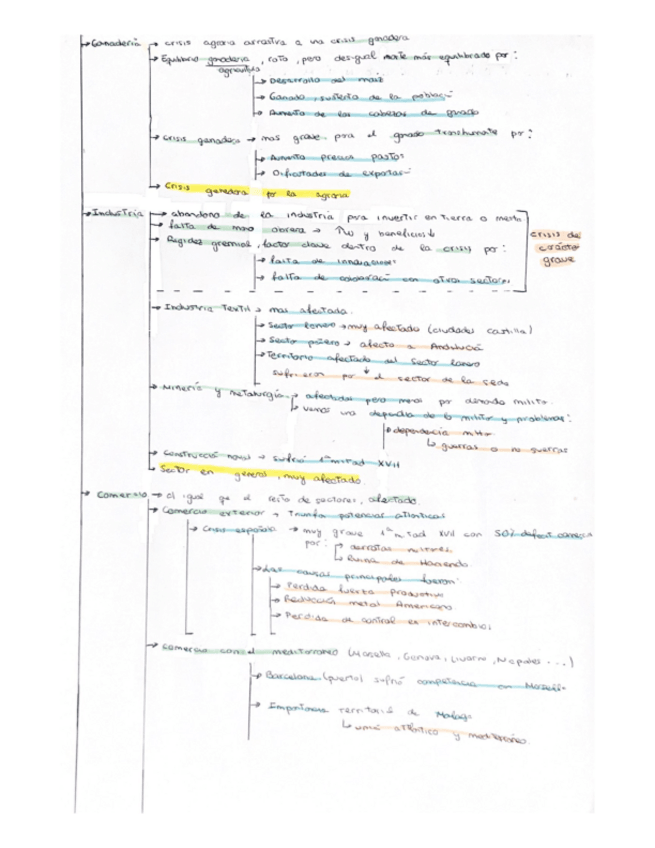 Ganadería → crisis agraria arrastra a una crisis ganadera
→ Equilibrio ganaderia, roto, pero desigual norte más equilibrado por:
agricultura
→ Desarrollo del maiz
→ Ganado, sustento de la población
→ Aumento de las cabezas de ganado
→ Crisis ganadera → mas grave para el ganado transhumante por:
→ Aumento precios pastos
→ Dificultades de exportar
→ Crisis ganadera por la agraria
→ Industria → abandono de la industria para invertir en tierra o
→ falta de mano obrera → ↑ y beneficios ↓
→ Rigidez gremial, factor clave dentro de la crisis por:
crisis de
carácter
grave
→ falta de innovaciones
→ falta de con otros sectores
→ Industria Textil → mas afectada.
→ Sector lanero → muy afectado (ciudades castilla)
→ Sector pañero → afecta a Andalucía
→ Territorio afectado del sector lanero
sufrieron por ↓ el sector de la seda
→ Minería y metalurgia → afectadas pero menos por demanda militar.
↳ vemos una de lo militar y problemas:
→ dependencia
↳ guerras o no guerras
→ Construcción naval → sufrió 1ª mitad XVII
→ Sector en general, muy afectado.
→ Comercio → al igual que el resto de sectores, afectado
→ Comercio exterior → Triunfa potencias atlanticas
→ Crisis española → muy grave 1ª mitad XVII con 50%
por: → derrotas militares
↳ Ruina de Hacienda
→ Las causas principales fueron:
→ Perdida fuerza Productiva
→ Reducción metal Americano
→ Perdida de control en intercambios
→ Comercio con el mediterraneo (Marsella, Genova, Livorno, Napoles...)
→ Barcelona (puerto) sufrió competencia con Marsella
→ Importancia territorio de Malaga
↳ unía atlántico y mediterráneo.